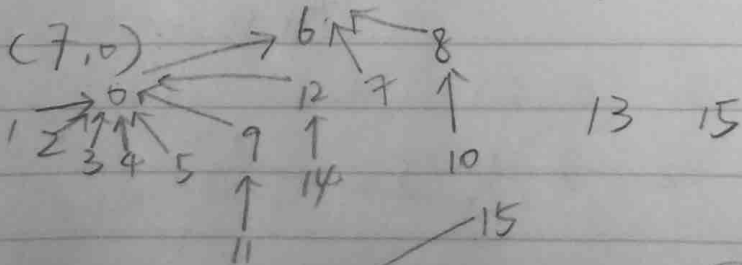 6 8
(7,0)
0 12 7 13 15
1 2 3 4 5 9 14 10
11 15